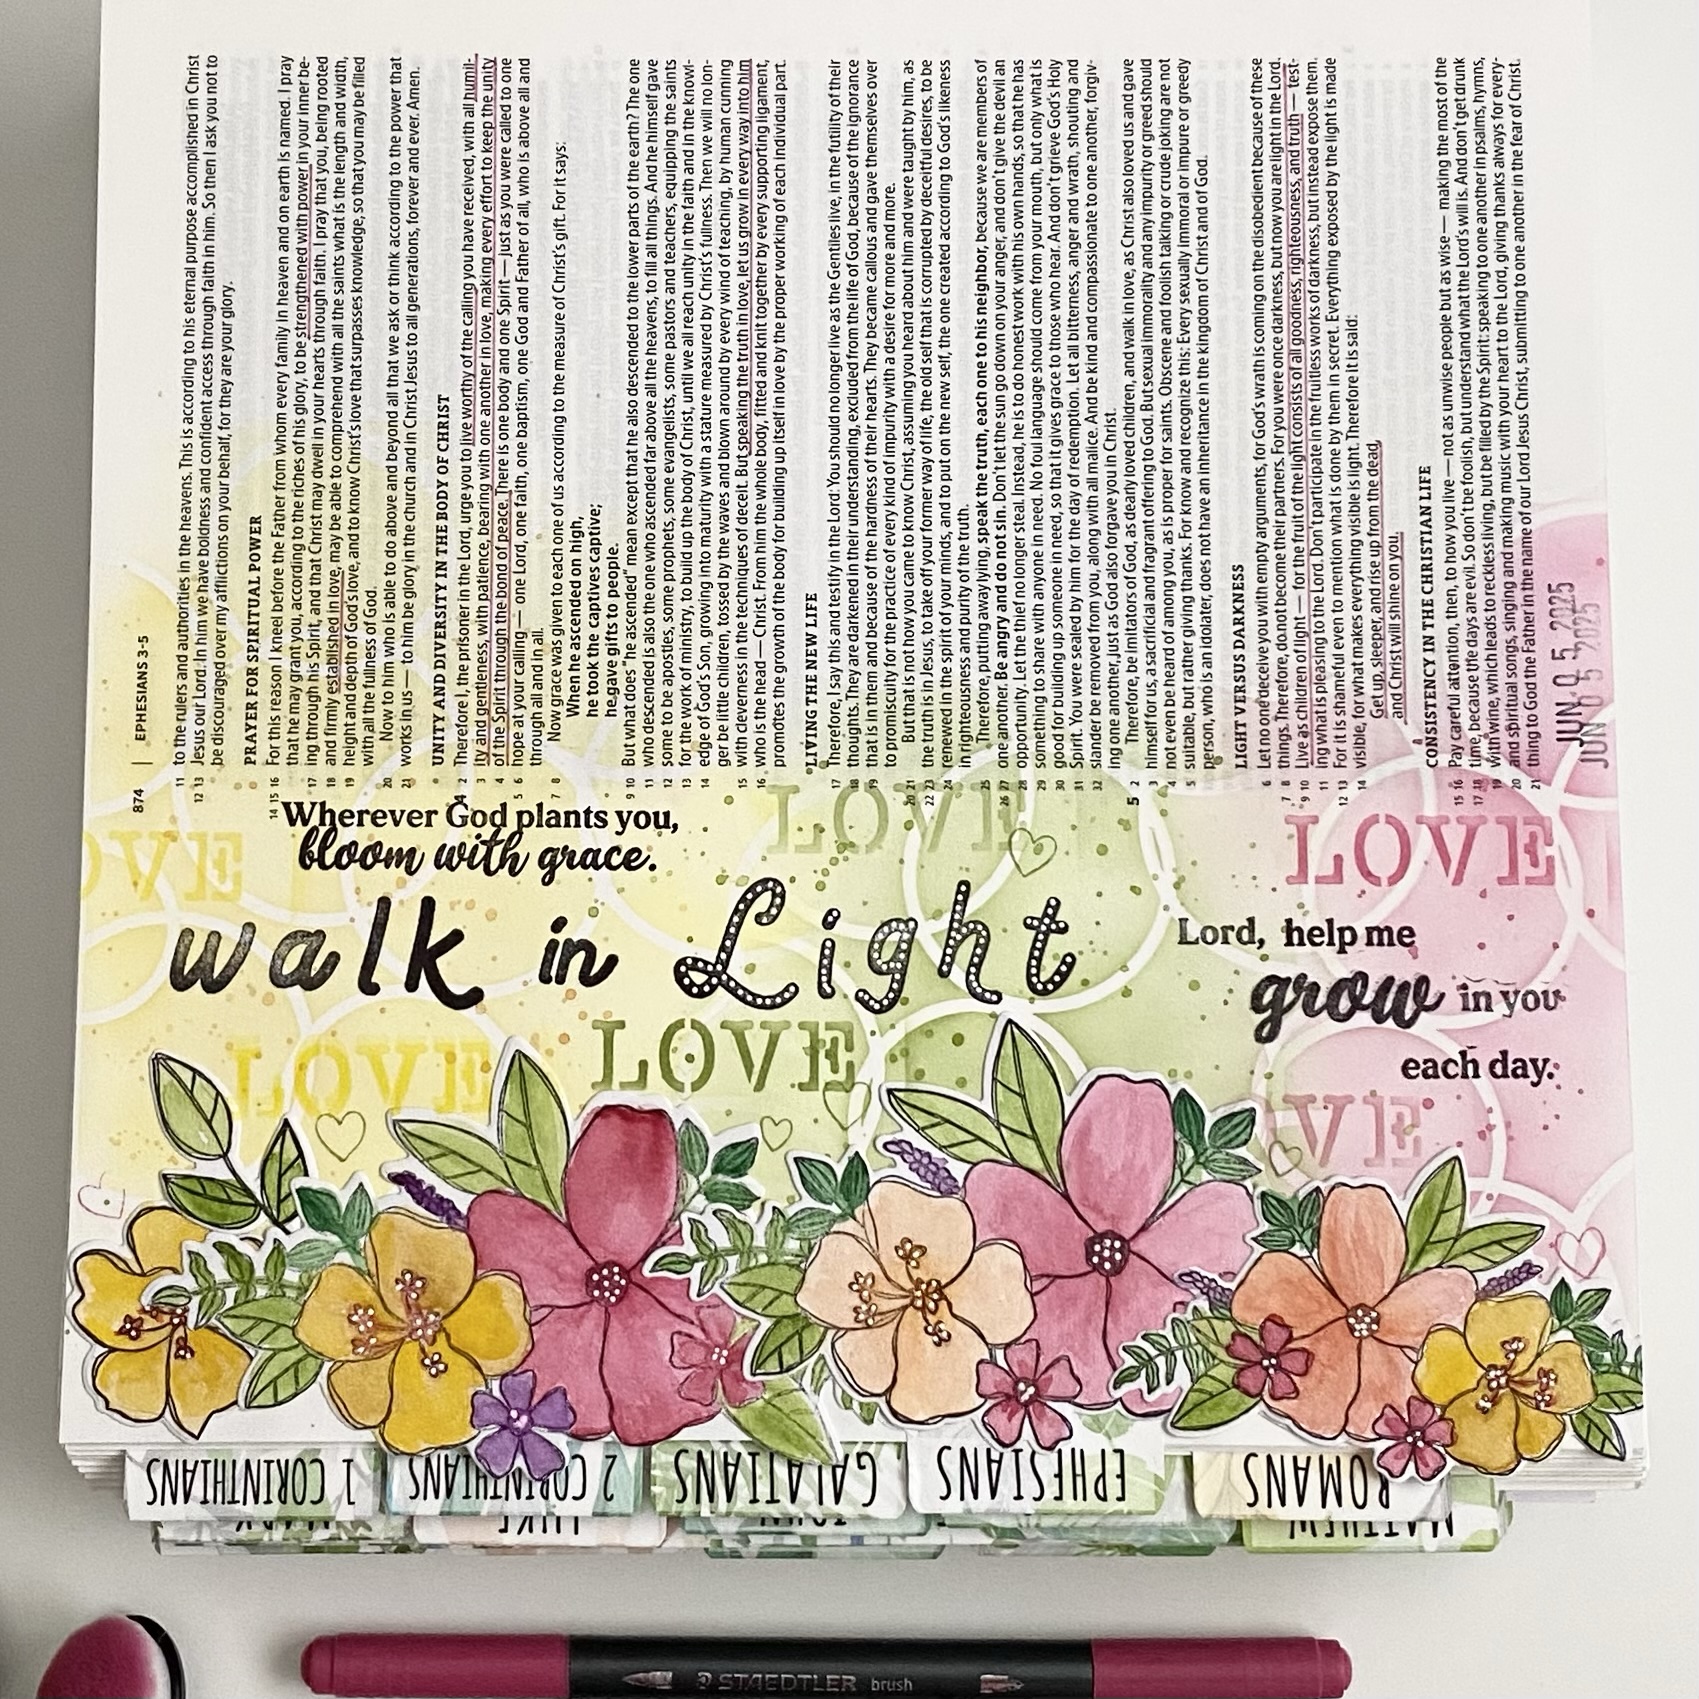 874 | EPHESIANS 3-5
11 to the rulers and authorities in the heavens. This is according to his eternal purpose accomplished in Christ
12 13 Jesus our Lord. In him we have boldness and confident access through faith in him. So then I ask you not to
be discouraged over my afflictions on your behalf, for they are your glory.
PRAYER FOR SPIRITUAL POWER
14 15 16 For this reason I kneel before the Father from whom every family in heaven and on earth is named. I pray
that he may grant you, according to the riches of his glory, to be strengthened with power in your inner be-
17 ing through his Spirit, and that Christ may dwell in your hearts through faith. I pray that you, being rooted
18 and firmly established in love, may be able to comprehend with all the saints what is the length and width,
19 height and depth of God's love, and to know Christ's love that surpasses knowledge, so that you may be filled
with all the fullness of God.
20 Now to him who is able to do above and beyond all that we ask or think according to the power that
21 works in us — to him be glory in the church and in Christ Jesus to all generations, forever and ever. Amen.
UNITY AND DIVERSITY IN THE BODY OF CHRIST
4 2 Therefore I, the prisoner in the Lord, urge you to live worthy of the calling you have received, with all humil-
3 ity and gentleness, with patience, bearing with one another in love, making every effort to keep the unity
4 of the Spirit through the bond of peace. There is one body and one Spirit — just as you were called to one
5 hope at your calling — one Lord, one faith, one baptism, one God and Father of all, who is above all and
6 through all and in all.
7 8 Now grace was given to each one of us according to the measure of Christ's gift. For it says:
When he ascended on high,
he took the captives captive;
he gave gifts to people.
9 10 But what does "he ascended" mean except that he also descended to the lower parts of the earth? The one
11 who descended is also the one who ascended far above all the heavens, to fill all things. And he himself gave
12 some to be apostles, some prophets, some evangelists, some pastors and teachers, equipping the saints
13 for the work of ministry, to build up the body of Christ, until we all reach unity in the faith and in the knowl-
14 edge of God's Son, growing into maturity with a stature measured by Christ's fullness. Then we will no lon-
ger be little children, tossed by the waves and blown around by every wind of teaching, by human cunning
15 with cleverness in the techniques of deceit. But speaking the truth in love, let us grow in every way into him
16 who is the head — Christ. From him the whole body, fitted and knit together by every supporting ligament,
promotes the growth of the body for building up itself in love by the proper working of each individual part.
LIVING THE NEW LIFE
17 Therefore, I say this and testify in the Lord: You should no longer live as the Gentiles live, in the futility of their
18 thoughts. They are darkened in their understanding, excluded from the life of God, because of the ignorance
19 that is in them and because of the hardness of their hearts. They became callous and gave themselves over
to promiscuity for the practice of every kind of impurity with a desire for more and more.
20 21 But that is not how you came to know Christ, assuming you heard about him and were taught by him, as
22 the truth is in Jesus, to take off your former way of life, the old self that is corrupted by deceitful desires, to be
23 24 renewed in the spirit of your minds, and to put on the new self, the one created according to God's likeness
in righteousness and purity of the truth.
25 Therefore, putting away lying, speak the truth, each one to his neighbor, because we are members of
26 27 one another. Be angry and do not sin. Don't let the sun go down on your anger, and don't give the devil an
28 opportunity. Let the thief no longer steal. Instead, he is to do honest work with his own hands, so that he has
29 something to share with anyone in need. No foul language should come from your mouth, but only what is
30 good for building up someone in need, so that it gives grace to those who hear. And don't grieve God's Holy
31 Spirit. You were sealed by him for the day of redemption. Let all bitterness, anger and wrath, shouting and
32 slander be removed from you, along with all malice. And be kind and compassionate to one another, forgiv-
ing one another, just as God also forgave you in Christ.
5 2 Therefore, be imitators of God, as dearly loved children, and walk in love, as Christ also loved us and gave
3 himself for us, a sacrificial and fragrant offering to God. But sexual immorality and any impurity or greed should
4 not even be heard of among you, as is proper for saints. Obscene and foolish talking or crude joking are not
5 suitable, but rather giving thanks. For know and recognize this: Every sexually immoral or impure or greedy
person, who is an idolater, does not have an inheritance in the kingdom of Christ and of God.
LIGHT VERSUS DARKNESS
6 Let no one deceive you with empty arguments, for God's wrath is coming on the disobedient because of these
7 8 things. Therefore, do not become their partners. For you were once darkness, but now you are light in the Lord.
9 10 Live as children of light — for the fruit of the light consists of all goodness, righteousness, and truth — test-
11 ing what is pleasing to the Lord. Don't participate in the fruitless works of darkness, but instead expose them.
12 13 For it is shameful even to mention what is done by them in secret. Everything exposed by the light is made
14 visible, for what makes everything visible is light. Therefore it is said:
Get up, sleeper, and rise up from the dead,
and Christ will shine on you.
CONSISTENCY IN THE CHRISTIAN LIFE
15 16 Pay careful attention, then, to how you live — not as unwise people but as wise — making the most of the
17 18 time, because the days are evil. So don't be foolish, but understand what the Lord's will is. And don't get drunk
19 with wine, which leads to reckless living, but be filled by the Spirit: speaking to one another in psalms, hymns,
20 and spiritual songs, singing and making music with your heart to the Lord, giving thanks always for every-
21 thing to God the Father in the name of our Lord Jesus Christ, submitting to one another in the fear of Christ.
JUN 0 5 2025
JUN 0 5 2025
Wherever God plants you,
bloom with grace.
OVE
LOVE
LOVE
walk in Light
Lord, help me
grow in you
each day.
LOVE
LOVE
VE
1 CORINTHIANS
2 CORINTHIANS
GALATIANS
EPHESIANS
ROMANS
MARK
LUKE
JOHN
MATTHEW
STAEDTLER brush